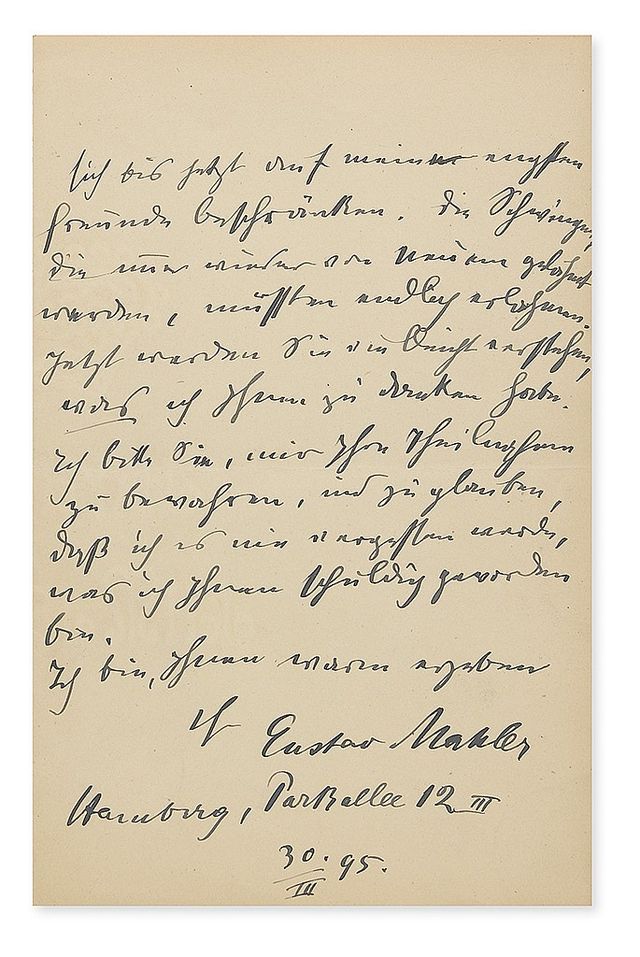 sich bis jetzt auf meine engsten
Freunde beschränken. Die Schwingen,
die immer wieder von Neuem gelähmt
werden, müssten endlich erlahmen.
Jetzt werden Sie vielleicht verstehen,
was ich Ihnen zu danken habe.
Ich bitte Sie, mir Ihre Theilnahme
zu bewahren, und zu glauben,
daß ich es nie vergessen werde,
was ich Ihnen schuldig geworden
bin.
Ich bin, Ihnen warm ergeben
Ihr Gustav Mahler
Hamburg, Parkallee 12 III
30. 95.
III